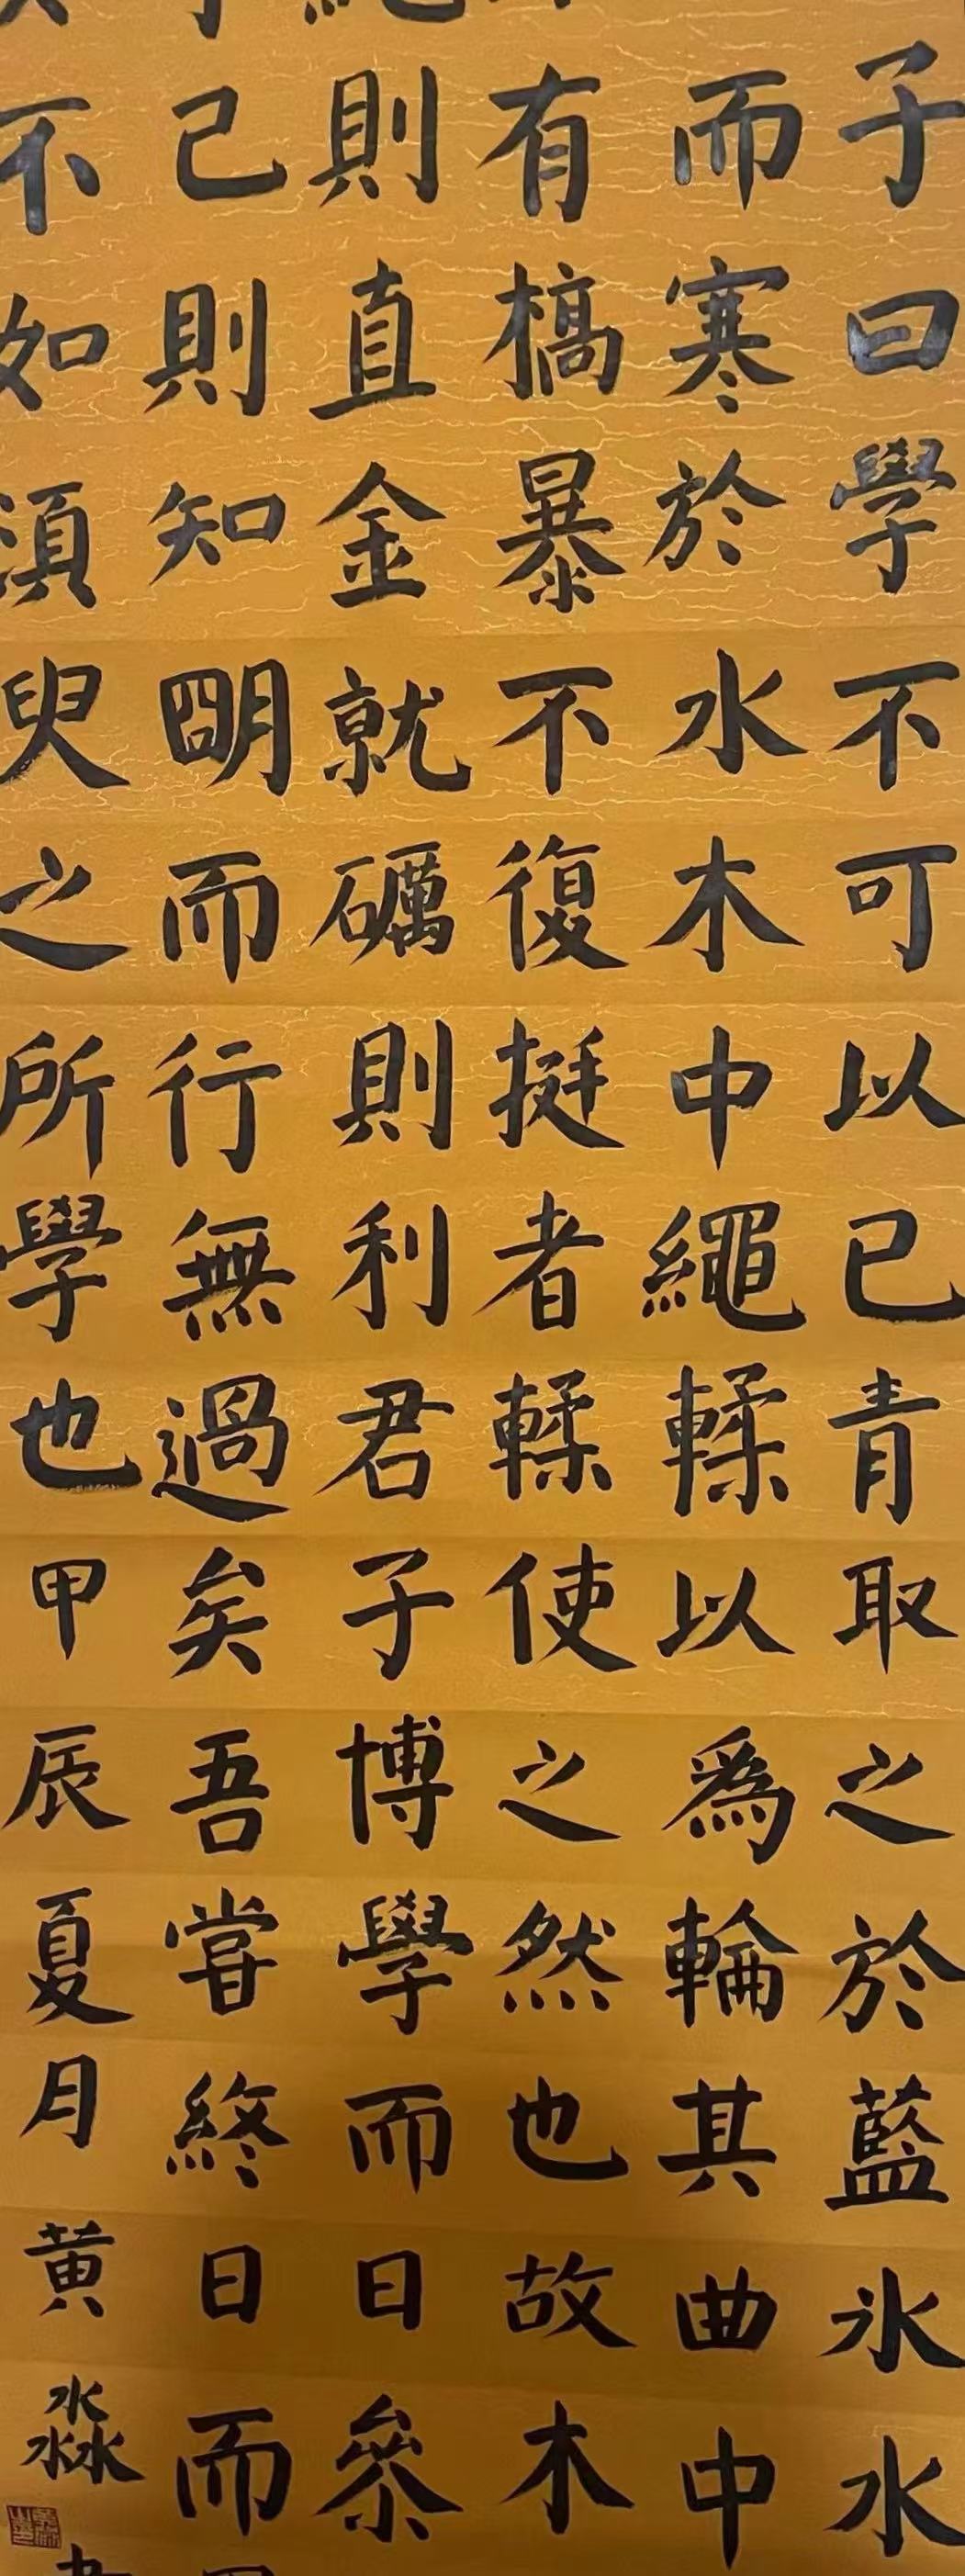 子曰學不可以已青取之於藍冰水
而寒於水木中繩輮以爲輪其曲中
有槁暴不復挺者輮使之然也故木
則直金就礪則利君子博學而日參
己則知明而行無過矣吾嘗終日而
不如須臾之所學也甲辰夏月黄淼